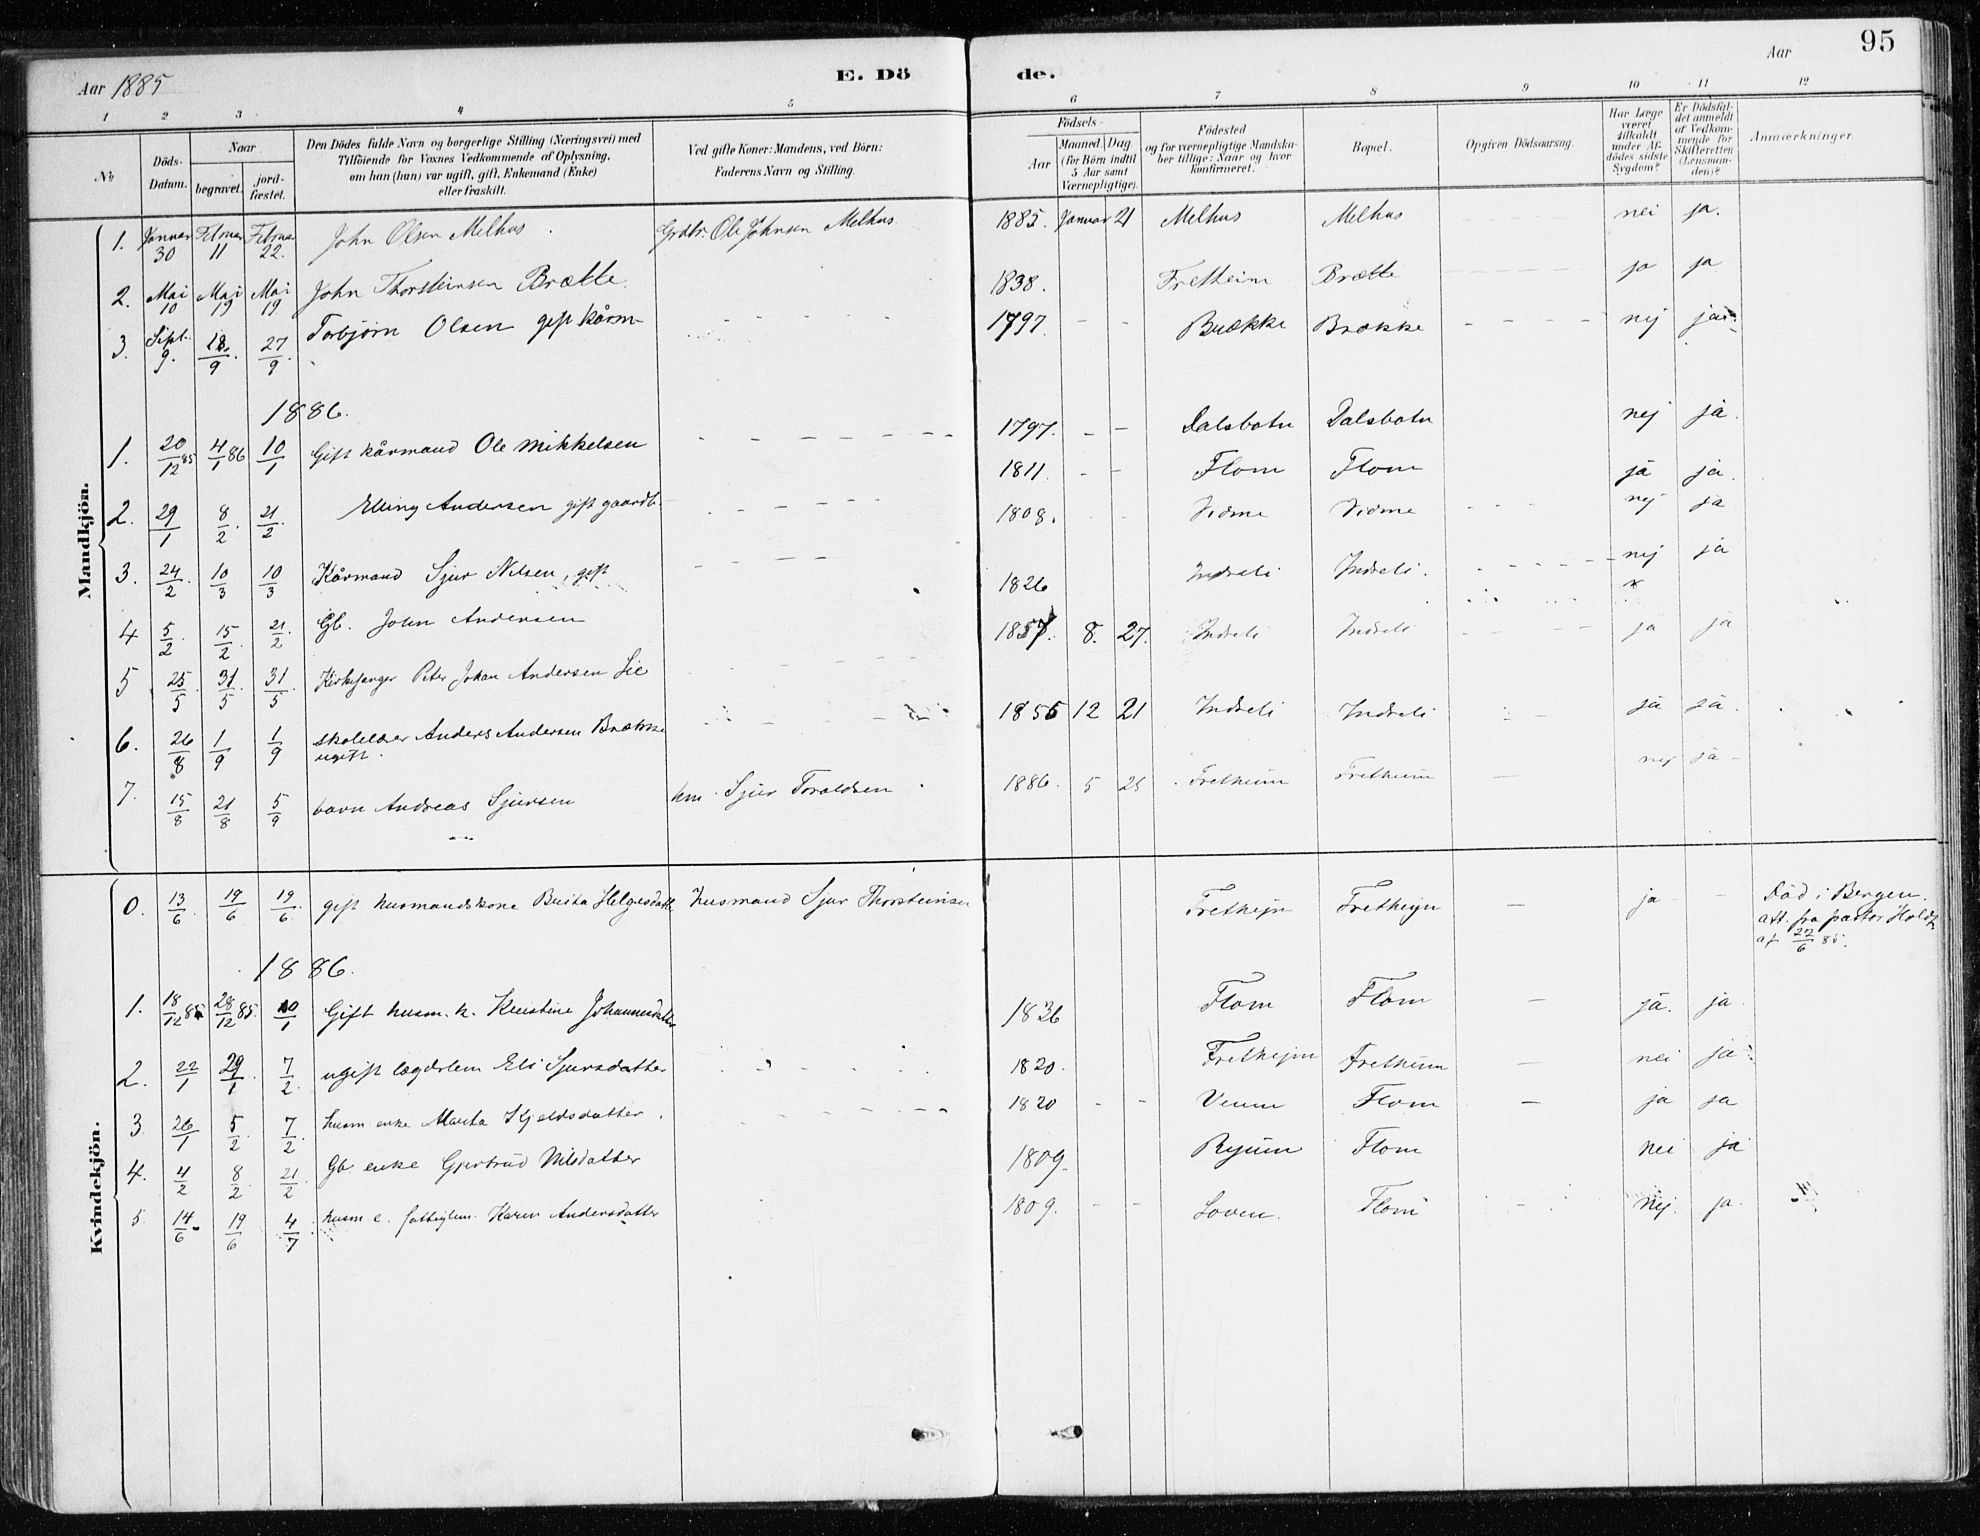 95
Aar 1885
E. Dö de.
Aar
1 2 3 4 5 6 7 8 9 10 11 12
No
Döds-Datum.
Naar
begravet.
jord-fæstet.
Den Dödes fulde Navn og borgerlige Stilling (Næringsvei) med
Tilföiende for Voxnes Vedkommende af Oplysning,
om han (hun) var ugift, gift, Enkemand (Enke)
eller fraskilt.
Ved gifte Koner: Mandens, ved Börn:
Faderens Navn og Stilling.
Födsels-
Aar
Maaned. Dag.
(for Börn indtil
5 Aar samt
Værnepligtige).
Födested
og for værnepligtige Mandska-
ber tillige: Naar og hvor
konfirmeret.
Bopæl.
Opgiven Dödsaarsag.
Har Læge
været
tilkaldt
under Af-
dödes sidste
Sygdom?
Er Dödsfal-
det anmeldt
af Vedkom-
mende for
Skifteretten
(Lensman-
den)?
Anmærkninger.
Mandkjön.
1. Januar 30 Februar 11 Februar 22. John Olsen Melhus. Grdbr. Ole Johnsen Melhus 1885. Januar 21 Melhus Melhus nei ja.
2. Mai 10 Mai 19 Mai 19 John Thorsteinsen Brætte. 1838. Fretheim Brætte ja ja
3. Sept. 9. 18/9. 27/9. Torbjørn Olsen gift kårm- 1797. Brække Brække nej ja
1886.
1. 20/12 85 4/1 86 10/1 Gift kårmand Ole Mikkelsen 1797. Dalsbotn Dalsbotn nej ja.
2. 29/1 8/2. 21/2. Elling Andersen gift gaardb. 1811. Flom Flom ja ja.
3. 24/2. 10/3 10/3 Kårmand Sjur Nilsen, gift 1808. Vidme Vidme nej ja
4 5/2. 15/2. 21/2. Gb. John Andersen 1826 Indreli Indreli. nej ja
5 25/5. 31/5. 31/5. Kirkesanger Peter Johan Andersen Lie 1857. 8. 27. Indreli Indreli ja ja
6. 26/8 1/9 1/9 skolelærer Anders Andersen Brække
ugift. 1855 12 21 Indreli Indreli ja ja.
7. 15/8 21/8 5/9 barn Andreas Sjursen hm. Sjur Toraldsen 1886. 5 25 Fretheim Fretheim nej ja
Kvindekjön.
0. 13/6. 19/6 19/6. gift husmandskone Brita Helgesdatter husmand Sjur Thorsteinsen Fretheijn Fretheijn ja Död i Bergen.
att. fra pastor Holdt
af 22/6 85.
1886.
1. 18/12 85 28/12 85. 10/1 Gift husm. k. Kristine Johannesdatter 1836 Flom Flom ja. ja
2. 22/1 29/1. 7/2. ugift lægdslem Eli Sjursdatter 1820. Fretheijm Fretheim nei ja
3 26/1 5/2. 7/2. husm enke Marita Kjeldsdatter. 1820 Vinm Flom ja ja
4. 4/2 8/2. 21/2 Gb enke Gjertrud Nilsdatter 1809. Ryum Flom nei ja
5. 14/6 19/6 4/7 husm e. fattiglem. Karen Andersdatter 1809. Loven. Flom nej. ja.